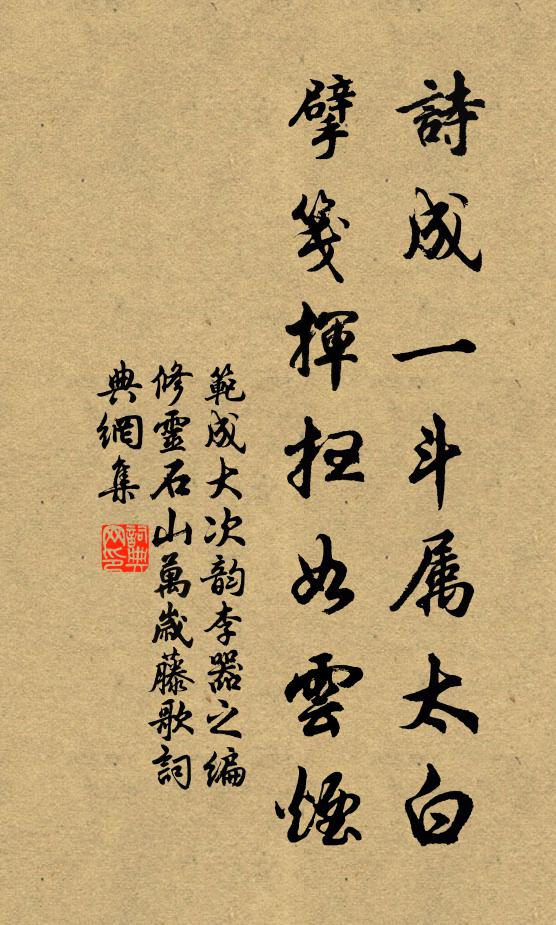 詩成一斗属太白
擘箋揮扫如雲煙
範成大次韵李器之编
修靈石山萬歲藤歌詞
典網集
詞典
网印